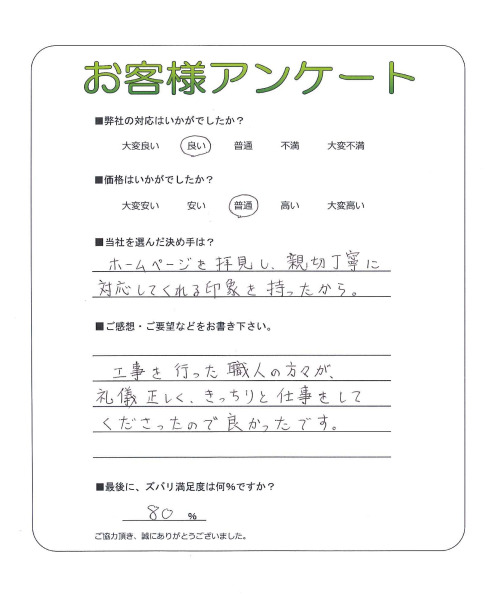 お客様アンケート
■弊社の対応はいかがでしたか？
大変良い 良い 普通 不満 大変不満
■価格はいかがでしたか？
大変安い 安い 普通 高い 大変高い
■当社を選んだ決め手は？
ホームページを拝見し、親切丁寧に
対応してくれる印象を持ったから。
■ご感想・ご要望などをお書き下さい。
工事を行った職人の方々が、
礼儀正しく、きっちりと仕事をして
くださったので良かったです。
■最後に、ズバリ満足度は何％ですか？
80 ％
ご協力頂き、誠にありがとうございました。